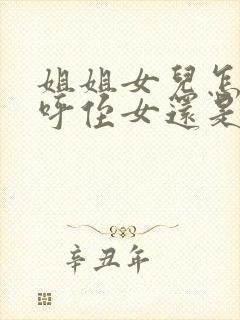 姐姐女兒怎
呼侄女還是
辛丑年